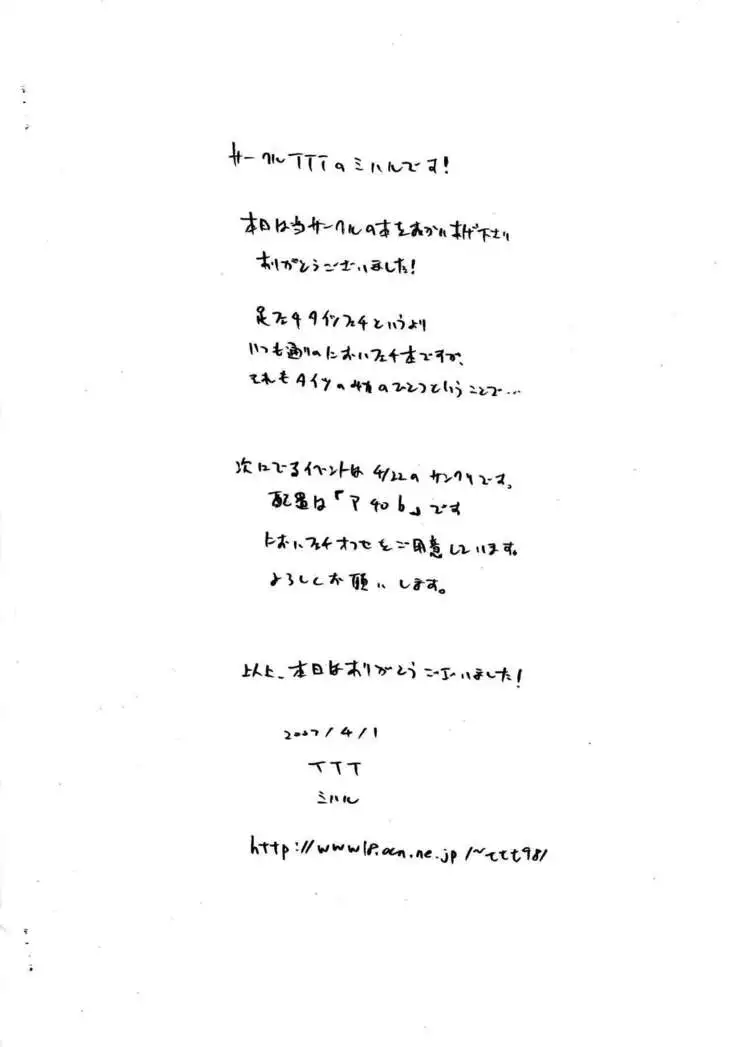 サークルTTTのミハルです!
本日は当サークルの本をおかいあげ下さり
ありがとうございました!
足フェチタイツフェチというより
いつも通りのにおいフェチ本ですが、
それもタイツの味のひとつということで…
次にでるイベントは 4/22の サンクリです。
配置は「ア40b」です
においフェチオフセをご用意しています。
よろしくお願いします。
以上、本日はありがとうございました!
2007/4/1
TTT
ミハル
http://www18.ocn.ne.jp/~ttt98/